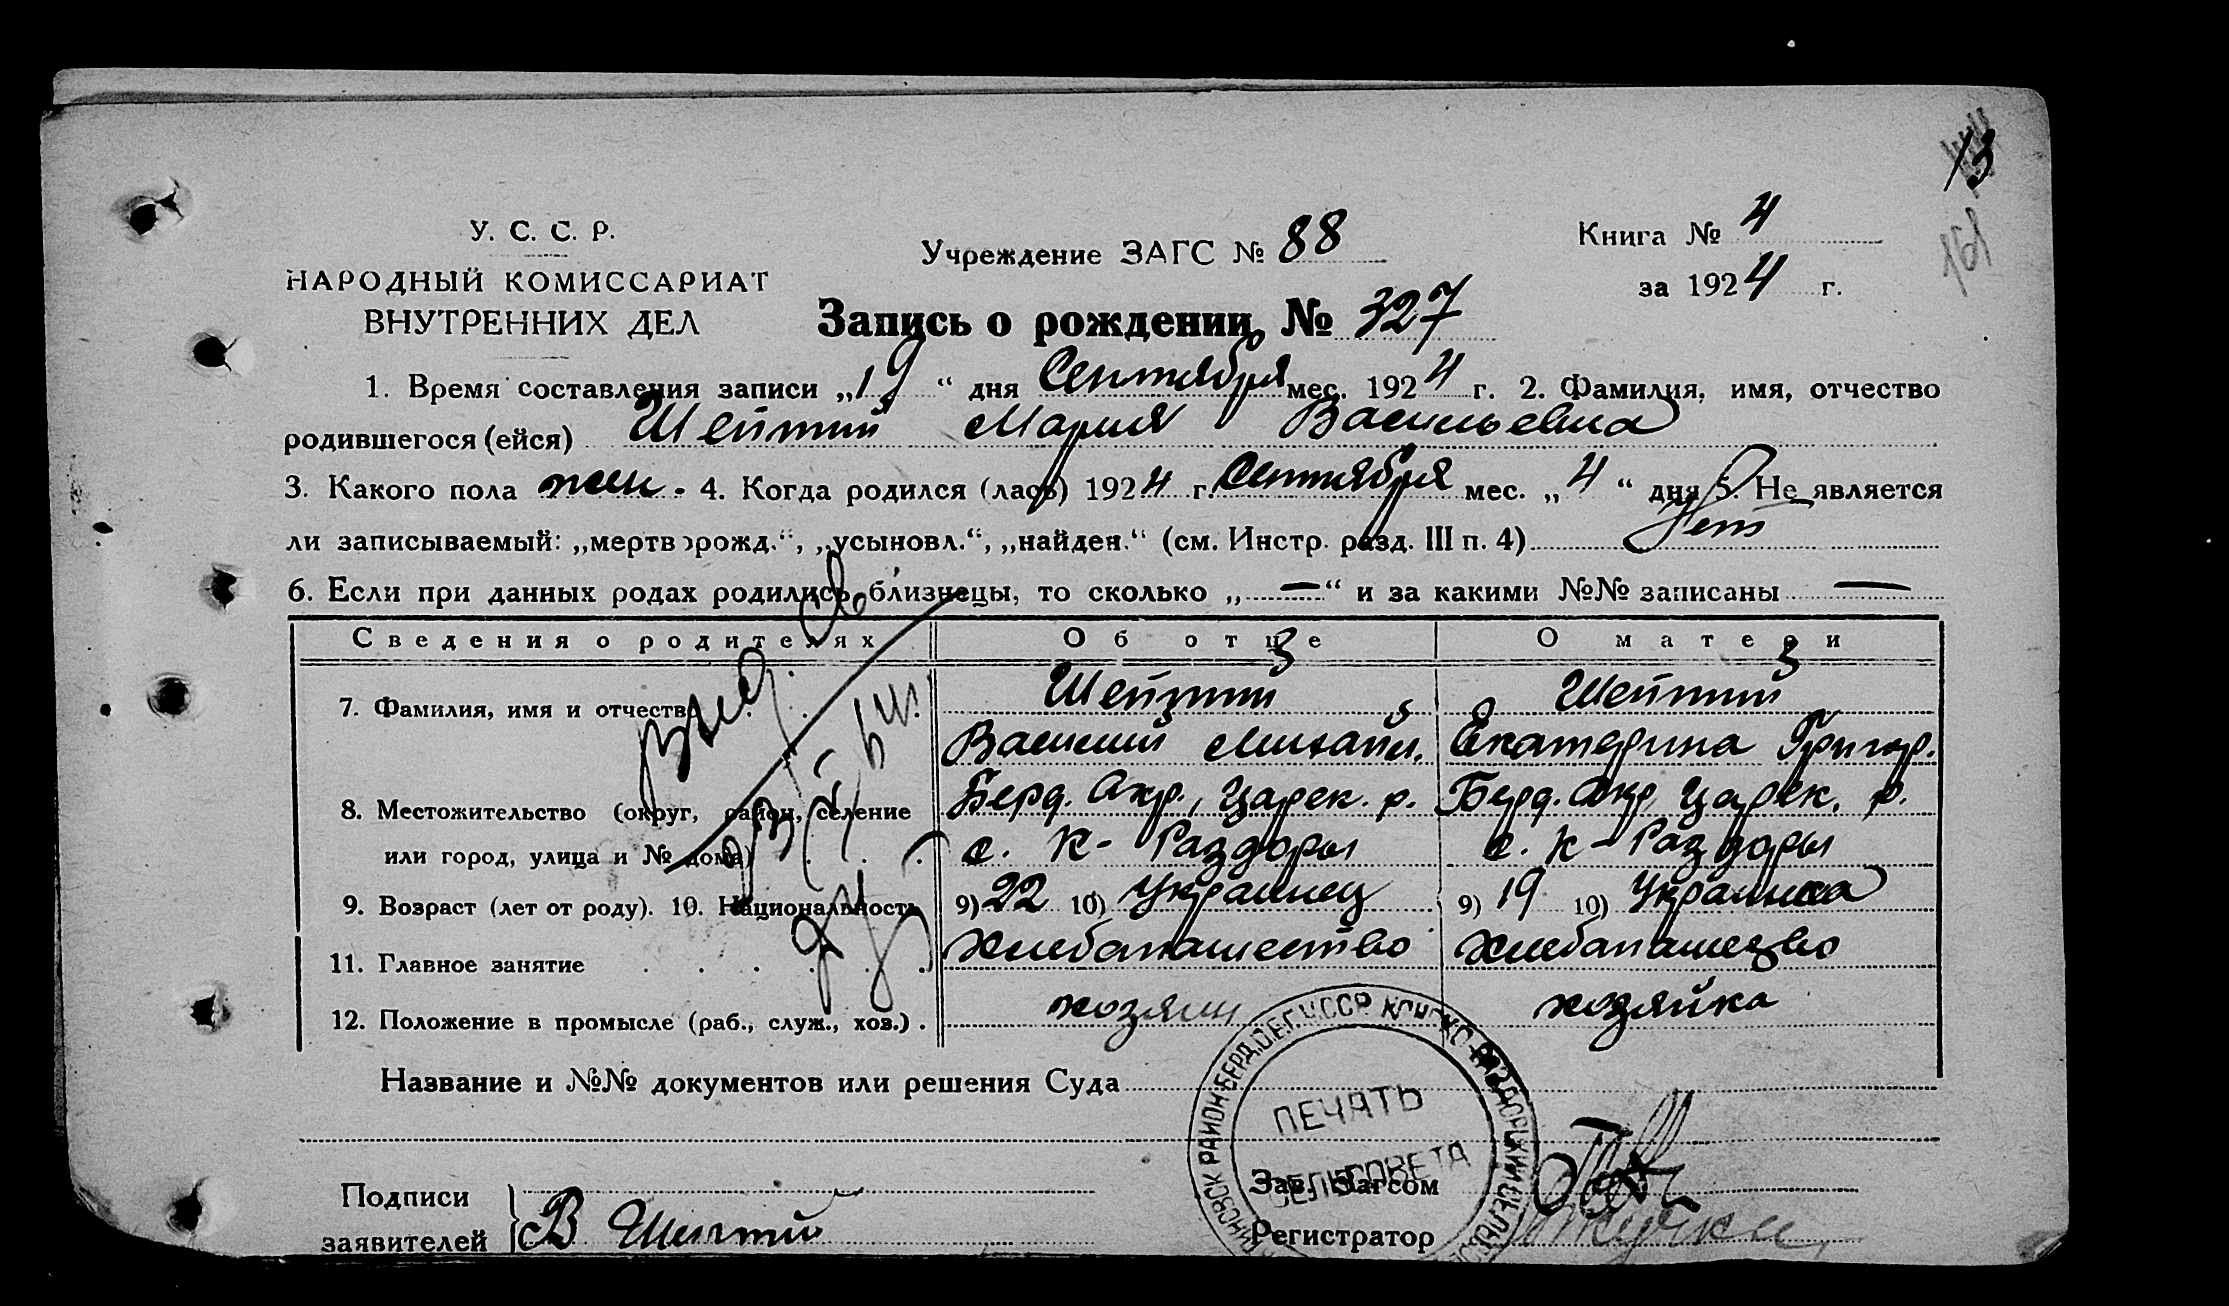 13
161
У. С. С. Р.
НАРОДНЫЙ КОМИССАРИАТ
ВНУТРЕННИХ ДЕЛ
Учреждение ЗАГС № 88
Книга № 4
за 1924 г.
Запись о рождении № 327
1. Время составления записи „19“ дня Сентября мес. 1924 г. 2. Фамилия, имя, отчество
родившегося (ейся) Шейтий Мария Васильевна
3. Какого пола жен. 4. Когда родился (лась) 1924 г. Сентября мес. „4“ дня 5. Не является
ли записываемый: „мертворожд.“, „усыновл.“, „найден.“ (см. Инстр. разд. III п. 4) Нет
6. Если при данных родах родились близнецы, то сколько „—“ и за какими №№ записаны —
Сведения о родителях Об отце О матери
7. Фамилия, имя и отчество Шейтий Шейтий
Василий Михайл. Екатерина Григор.
8. Местожительство (округ, район, селение Берд. Окр., Царек. р. Берд. Окр. Царек. р.
или город, улица и № дома) с. К-Раздоры с. К-Раздоры
9. Возраст (лет от роду). 10. Национальность 9) 22 10) Украинец 9) 19 10) Украинка
11. Главное занятие Хлебопашество Хлебопашество
12. Положение в промысле (раб., служ., хоз.) хозяин хозяйка
Название и №№ документов или решения Суда
ПЕЧАТЬ
СЕЛЬСОВЕТА
Подписи
заявителей В Шейтий
Зав. Загсом
Регистратор